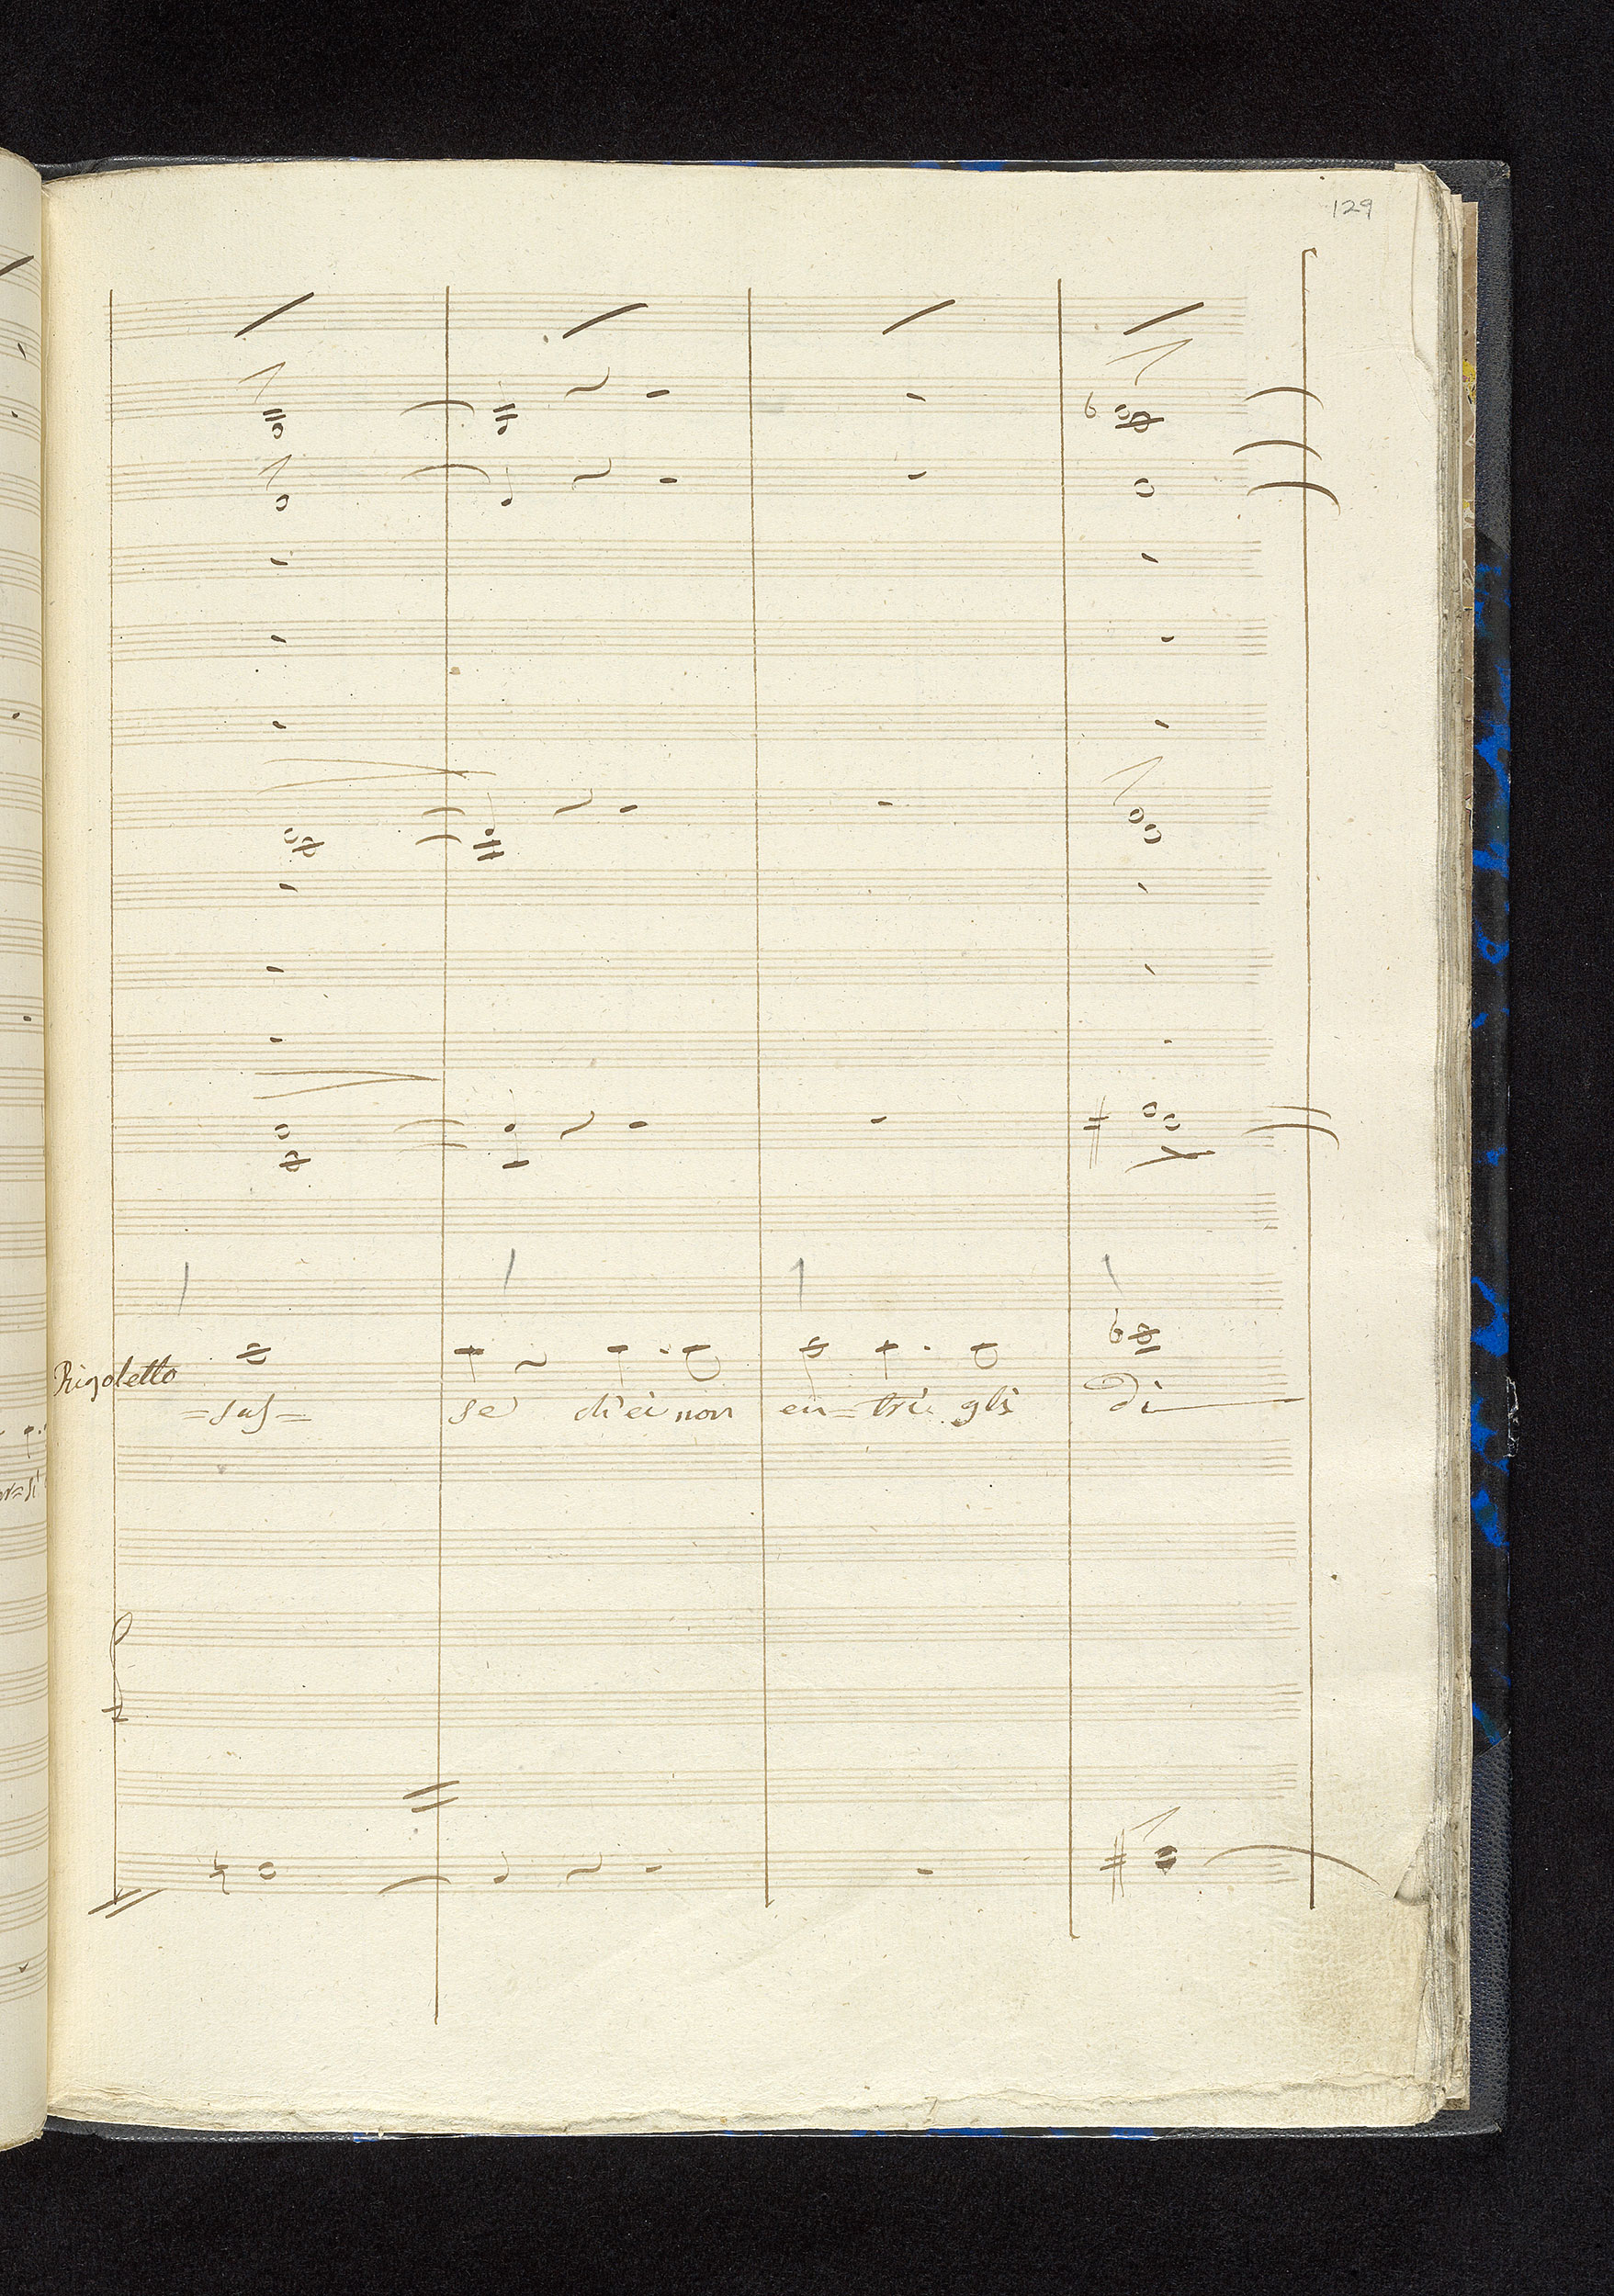 129
Rigoletto
=sas=
se ch'ei non en=tri gli di